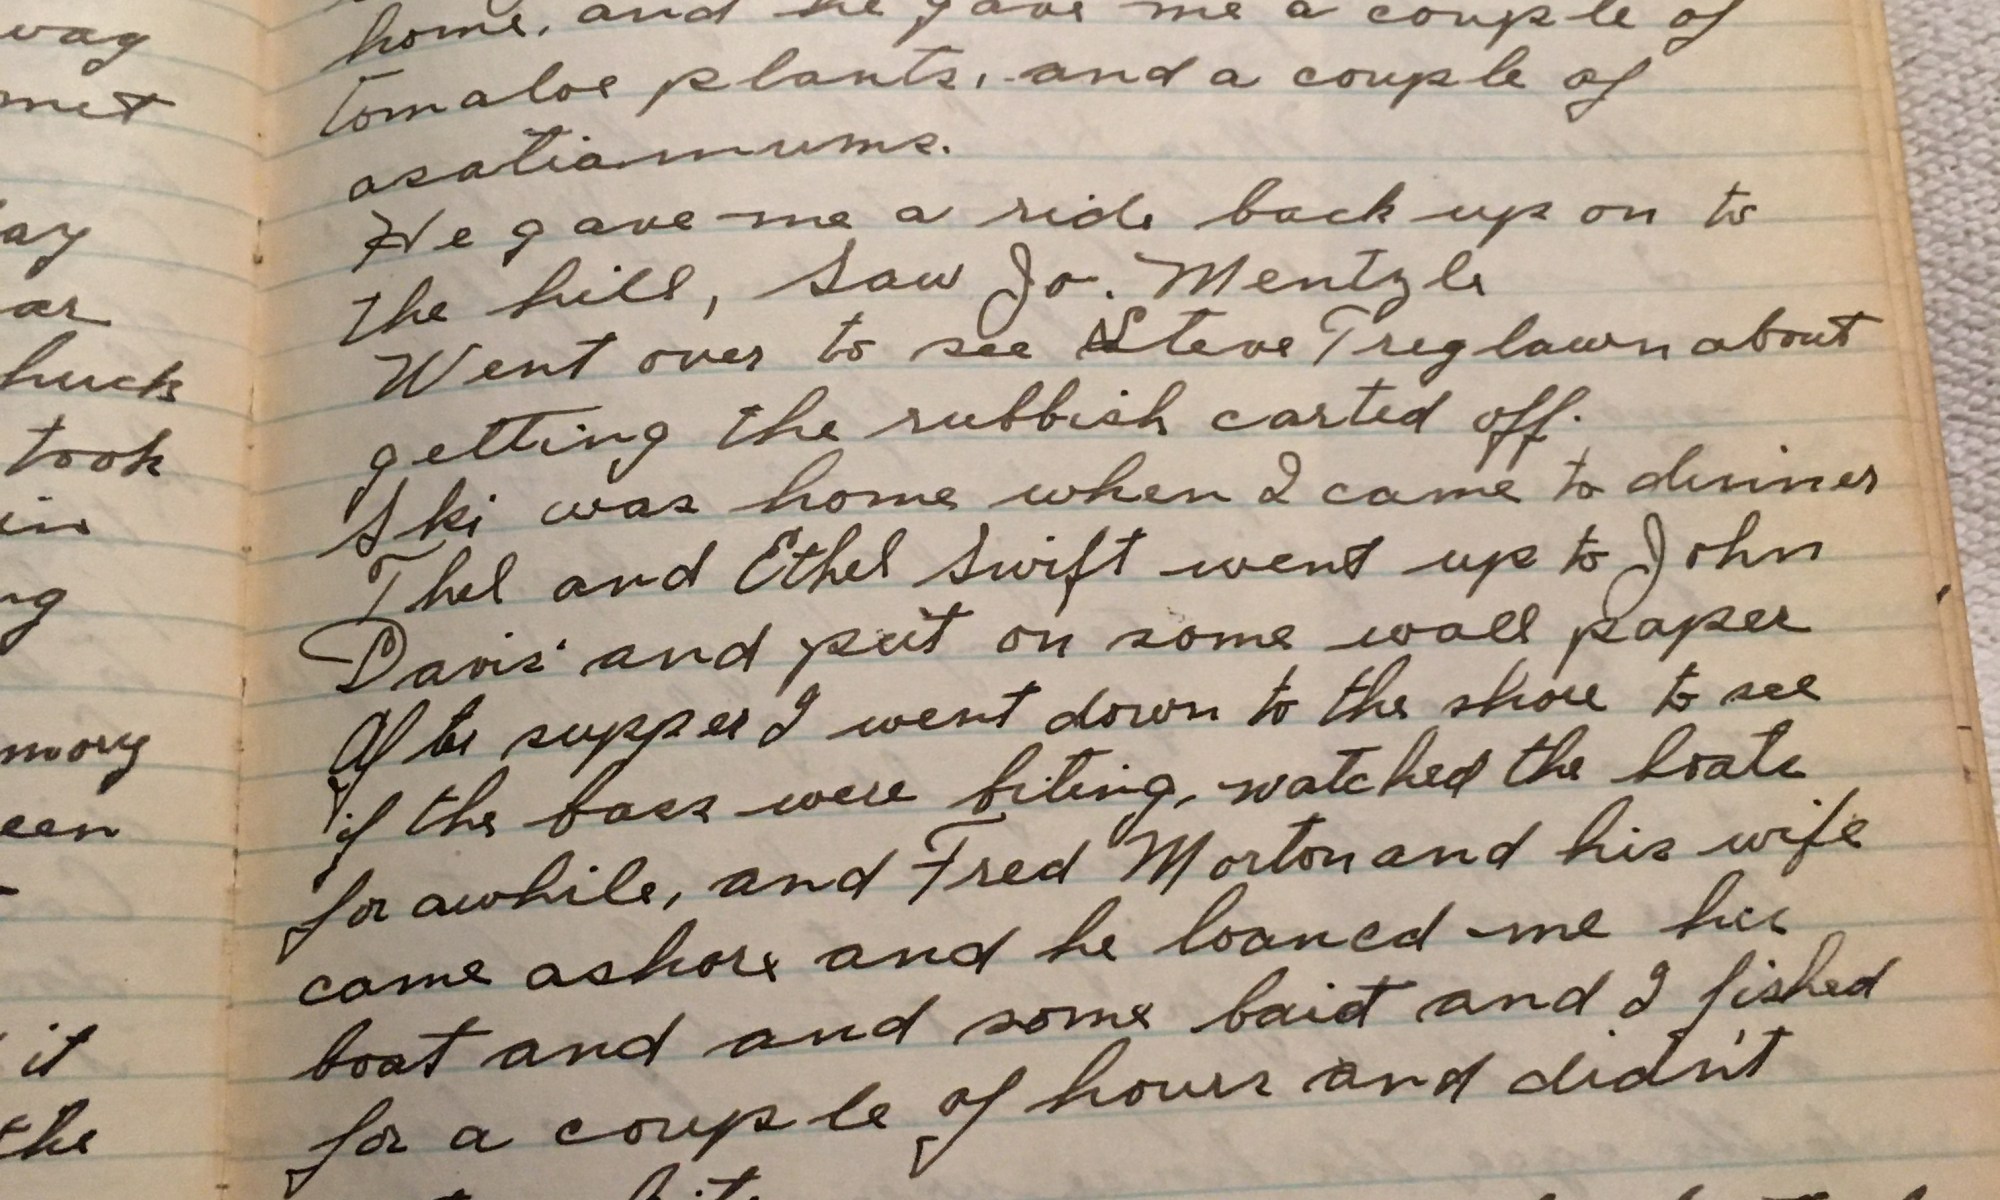 way
met
ay
ar
huck
took
in
ng
mory
een
it
the
home, and he gave me a couple of
tomatoe plants, and a couple of
asatiamums.
He gave me a ride back up on to
the hill, Saw Jo. Mentzle
Went over to see Steve Treglawn about
getting the rubbish carted off.
Ski was home when I came to dinner
Thel and Ethel Swift went up to John
Davis' and put on some wall paper
After supper I went down to the shore to see
if the bass were biting, watched the boats
for awhile, and Fred Morton and his wife
came ashore and he loaned me his
boat and and some bait and I fished
for a couple of hours and didn't